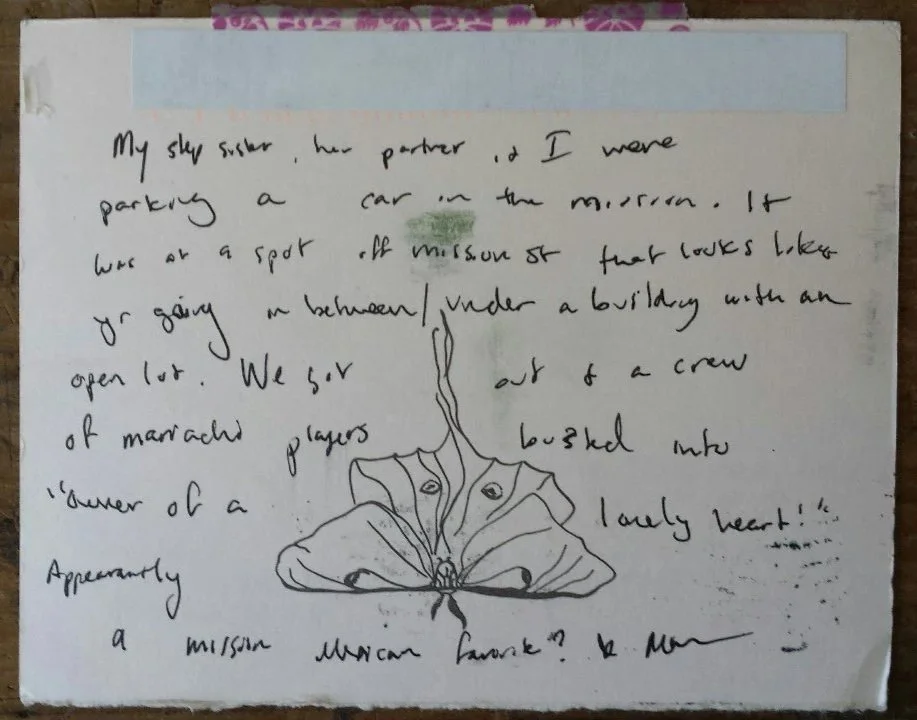 My step sister, her partner, & I were
parking a car in the mission. It
was at a spot off mission st that looks like
yr going in between/under a building with an
open lot. We got out & a crew
of mariachi players busted into
"owner of a lonely heart!"
Appearantly
a mission Mexican favorite?